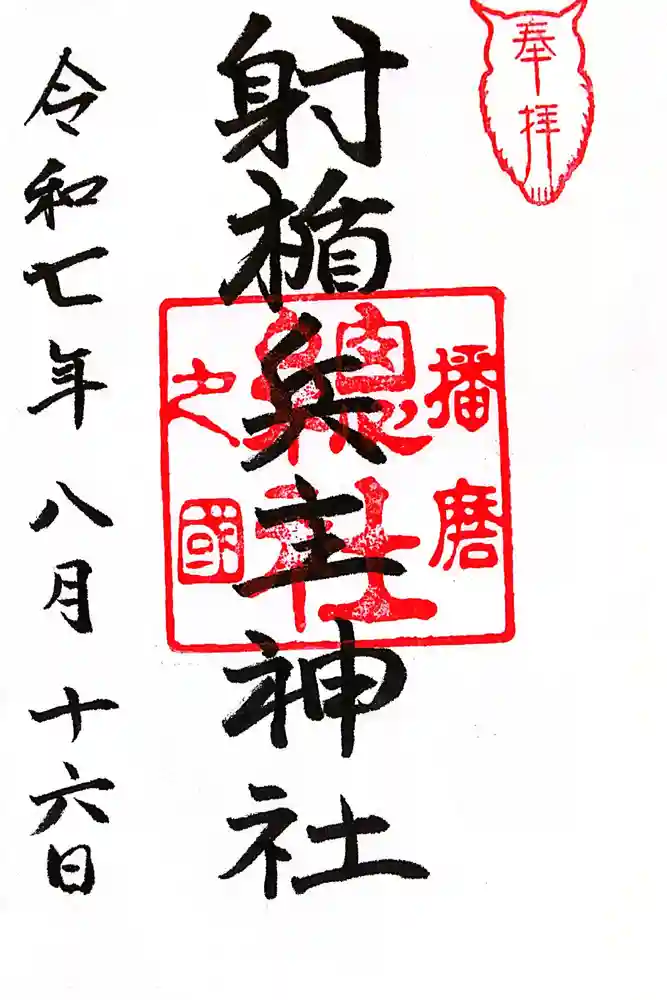 奉拝
射楯兵主神社
播磨
総社
之國
令和七年 八月 十六日